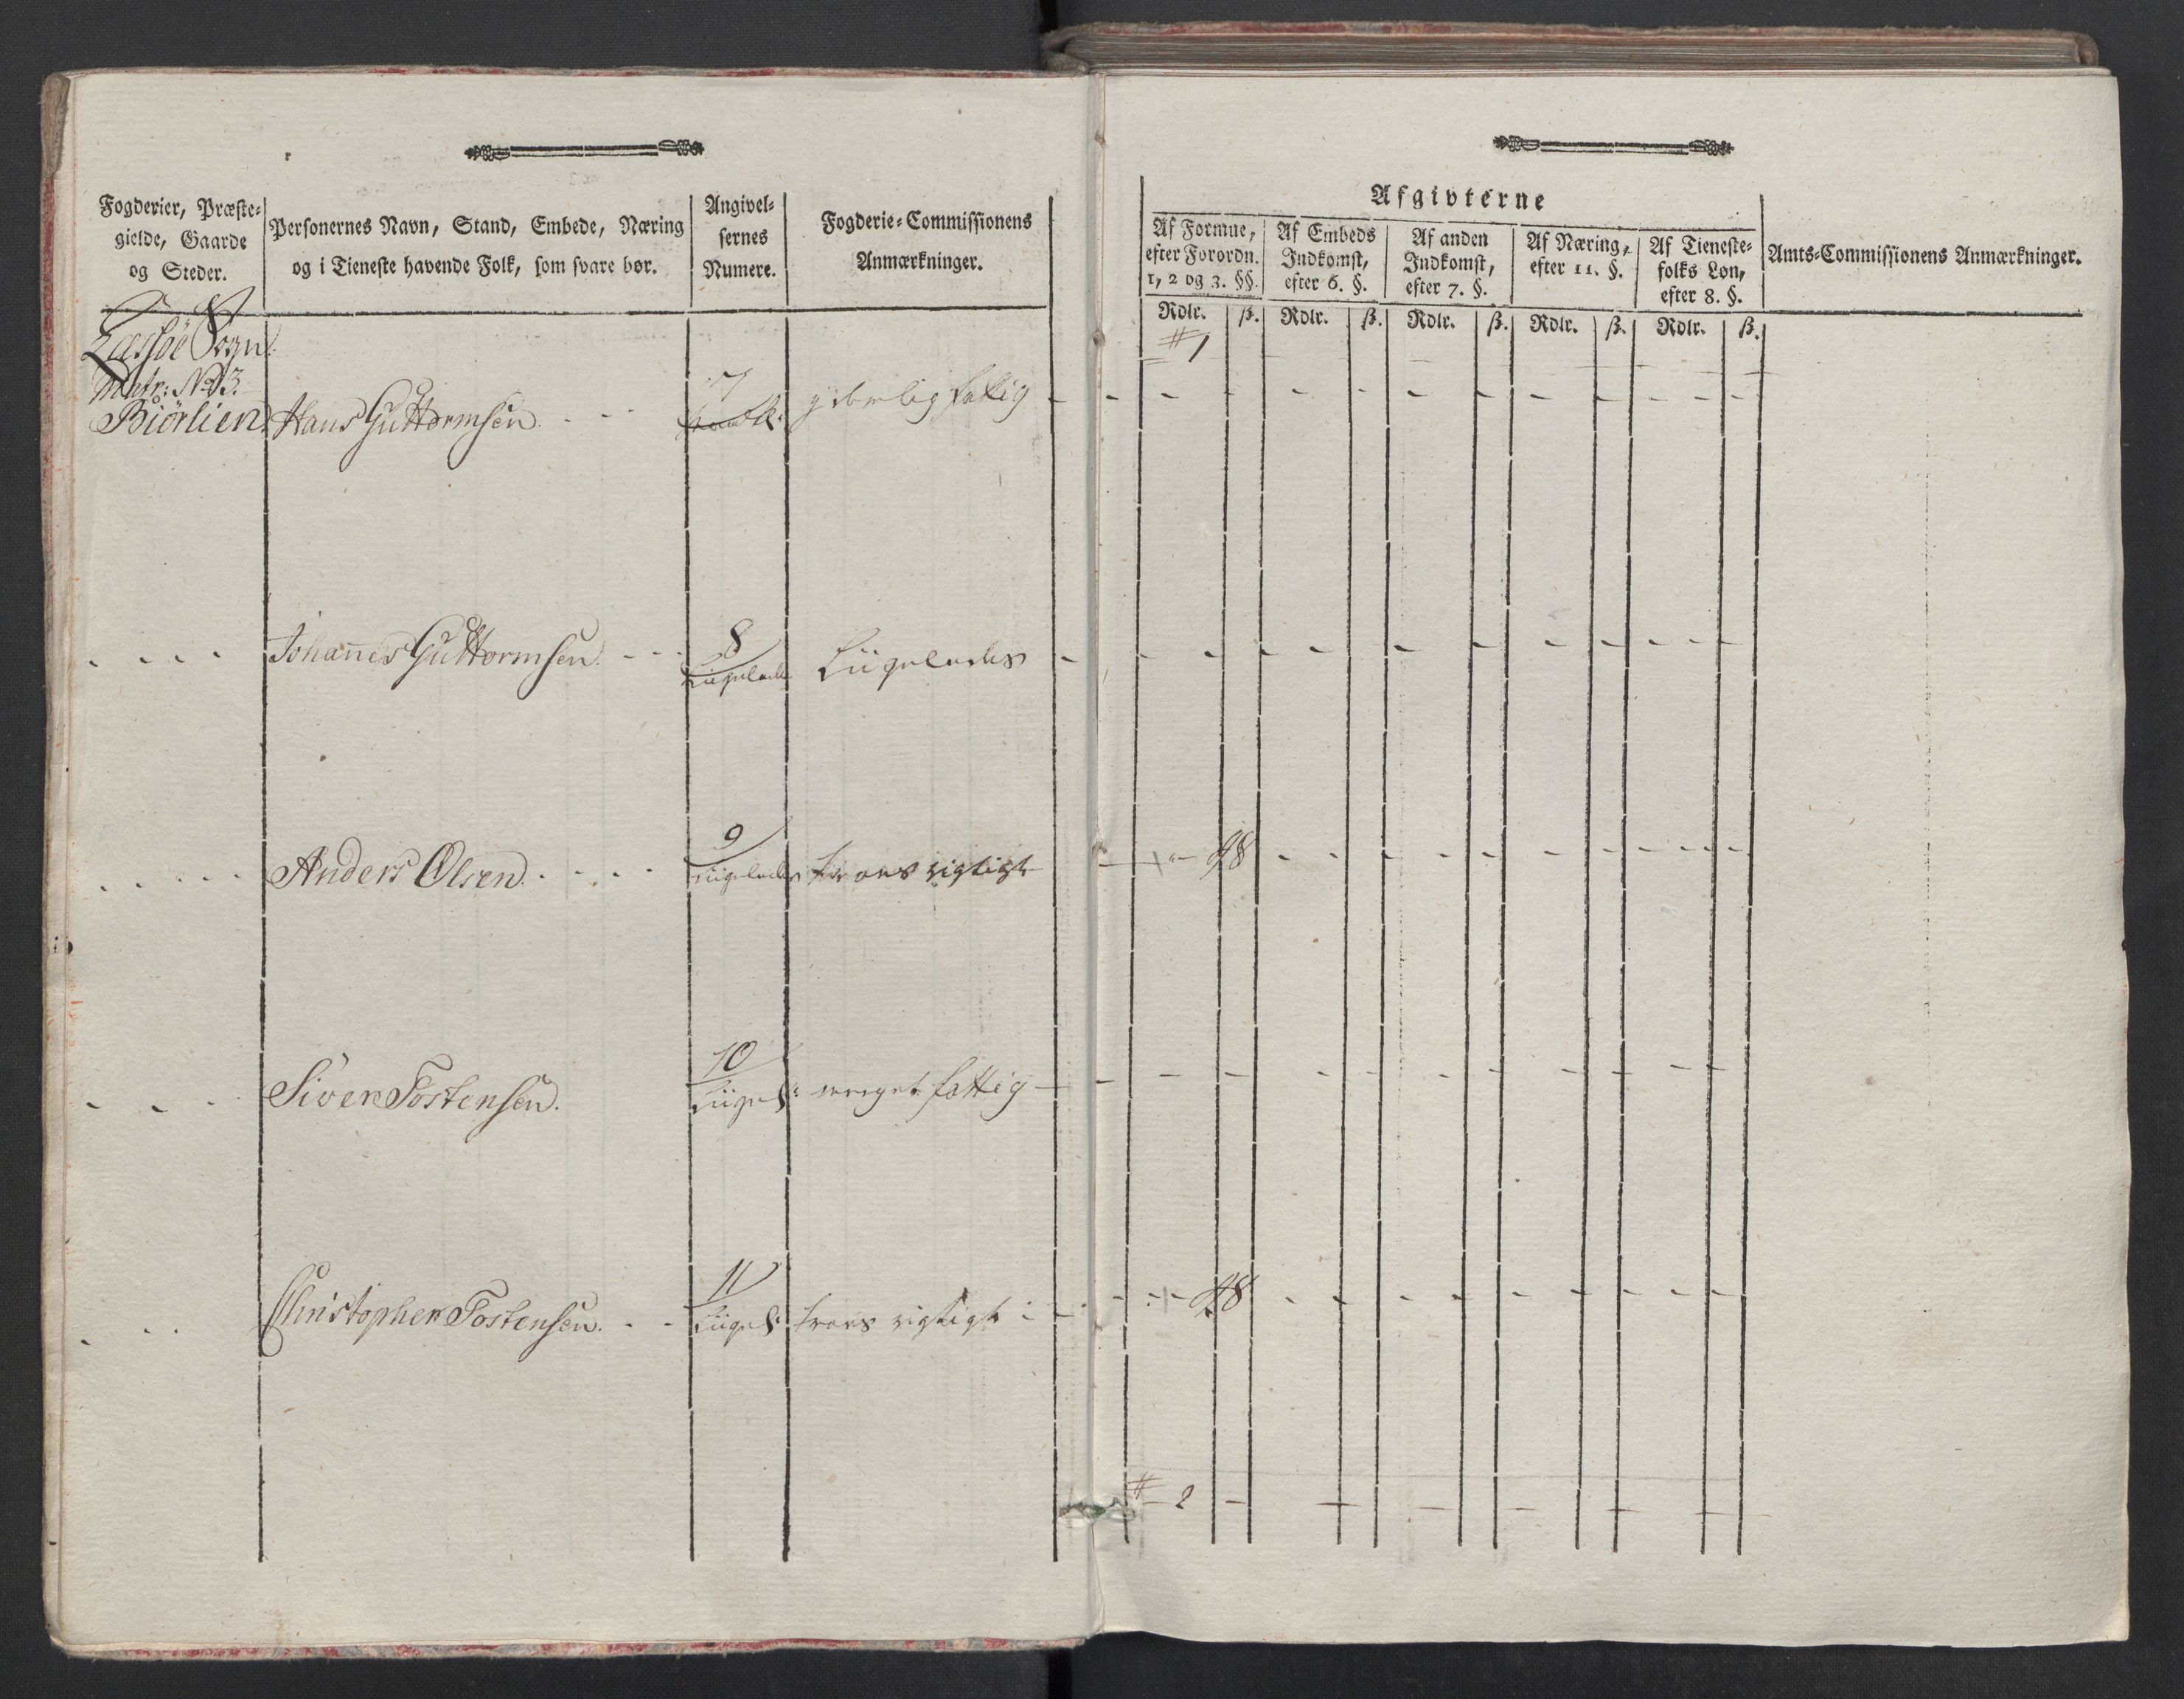 Fogderier, Præste-
gielde, Gaarde
og Steder.
Personernes Navn, Stand, Embede, Næring
og i Tieneste havende Folk, som svare bør.
Angivel-
sernes
Numere.
Fogderie-Commissionens
Anmærkninger.
Afgivterne
Af Formue,
efter Forordn.
1, 2 og 3. §§.
Af Embeds
Indkomst,
efter 6. §.
Af anden
Indkomst,
efter 7. §.
Af Næring,
efter 11. §.
Af Tieneste-
folks Løn,
efter 8. §.
Amts-Commissionens Anmærkninger.
Rdlr. ß. Rdlr. ß. Rdlr. ß. Rdlr. ß. Rdlr. ß.
# 1
Læssøe Sogn
Matr: No 3.
7
Biörlien. Hans Guttormsen. fattig
8
Johannes Guttormsen. Liigeledes Liigeledes
9
Anders Olsen. Liigeledes troes rigtigt 48
10
Siver Tostensen. Liigel: meget fattig
11
Christopher Tostensen. Liigel: troes rigtigt 48
# 2